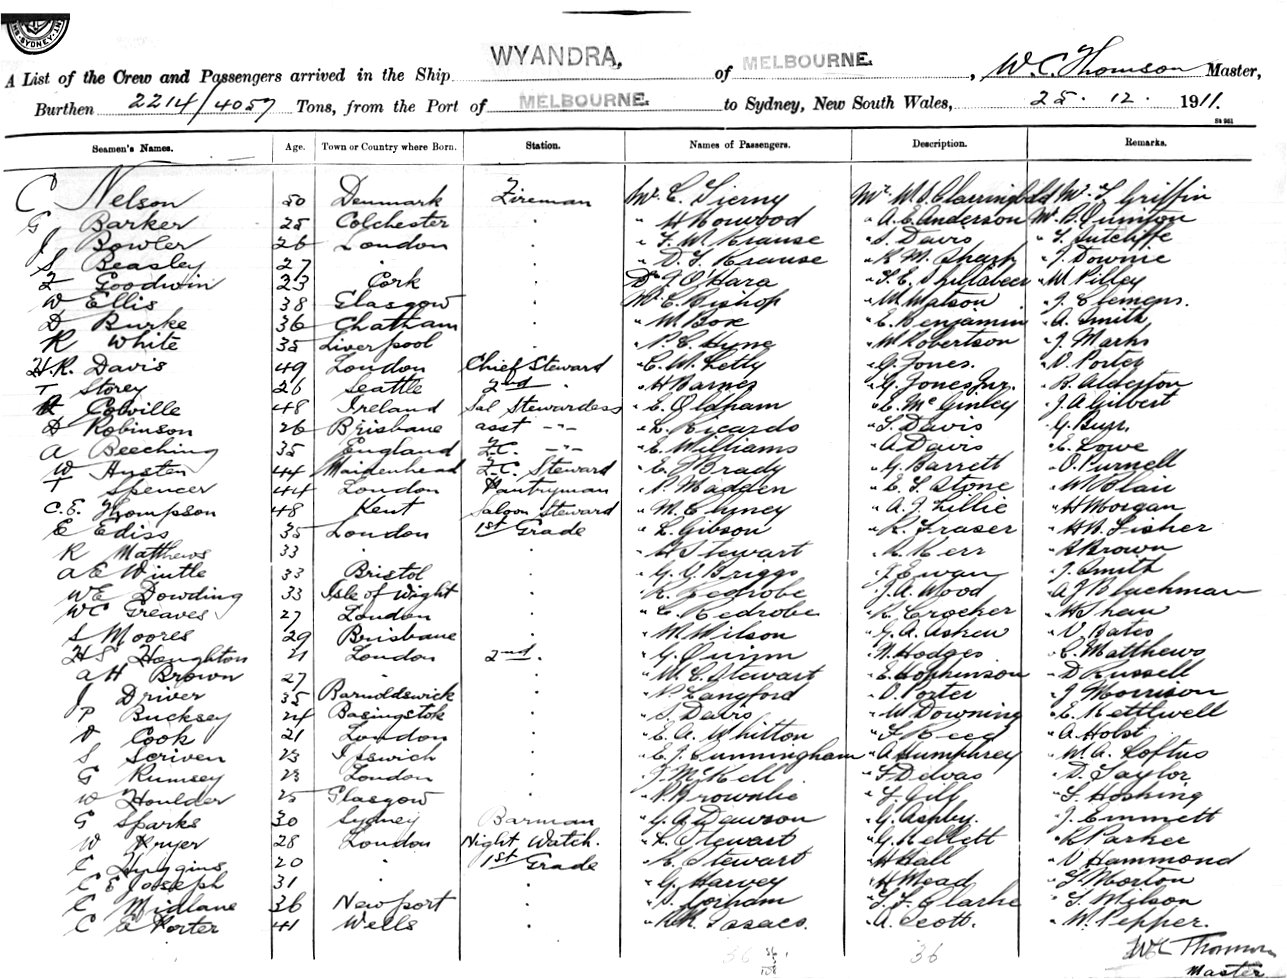 SYDNEY
WYANDRA,
MELBOURNE.
A List of the Crew and Passengers arrived in the Ship WYANDRA, of MELBOURNE. , W. C. Thomson Master,
Burthen 2214/4057 Tons, from the Port of MELBOURNE. to Sydney, New South Wales, 25. 12. 1911.
Seamen's Names. Age. Town or Country where Born. Station. Names of Passengers. Description. Remarks.
C Nelson 50 Denmark Fireman Mr E. Tierny Mr W. S. Mr F Griffin
G Barker 25 Colchester " " H Horwood " A. E. Anderson Mr
J Bowler 26 London " " F. W. Krause " S. Davis " F. Sutcliffe
S Beasley 27 " " " D. F. Krause " K M. Sharp " J. Downie
F Goodwin 23 Cork " Dr J O'Hara " F. E. Shillabeer " W. Pilley
W Ellis 38 Glasgow " Mr E. Bishop " W. Watson " J. Clemens.
D Burke 36 Chatham " " W Box " E. Benjamin " A. Smith
R White 35 Liverpool " " P. E. Hyne " W Robertson " J. Marks
H. R. Davis 49 London Chief Steward " C. W. Letly " G. Jones. " V. Porter
T Storey 26 Seattle 2nd " " H Barnes " G. Jones Jnr. " R. Alderton
Colville 48 Ireland Sal Stewardess " E. Oldham " E. McGinley " J. A Gilbert
D Robinson 26 Brisbane asst -"- " L. Ricardo " S. Davis " G.
A Beeching 35 England F.C. -"- " E Williams " A Davis " E. Lowe
W 44 Maidenhead F.C. Steward " C. J Brady " G. Barrett " O. Purnell
T Spencer 44 London Pantryman " P. Madden " E. F. Stone " W Blair
C. E. Thompson 48 Kent Saloon Steward " M. " A. J Lillie " H Morgan
E Ediss 35 London 1st Grade " L. Gibson " R. Fraser " H W. Fisher
R Matthews 33 " " " H Stewart " R. Kerr " A Brown
A E Wintle 33 Bristol " " G. V. Briggs " J Ewan " J. Smith
W E Dowding 33 Isle of Wight " " Kedrobe " J. A. Wood " A J Blachman
W C Greaves 27 London " " Kedrobe " Crocker " Shaw
S Moores 29 Brisbane " " W Wilson " G. A. Askew " V. Bates
H S Houghton 21 London 2nd. " G. Quinn " W. Hodges " C. Matthews
A H Brown 27 " " " W. C. Stewart " E. Hopkinson " D Russell
J Driver 35 Barnoldswick " " P. Langford " O. Porter " J Morrison
P Bucksey 24 Basingstok " " S. Davis " W Downing " E. Kettlwell
V Cook 21 London " " E. A. Whitton " Reed " A. Holst
S Scriven 23 Ipswich " " E. J. Cunningham " A Humphrey " W. A. Loftus
G Rumsey 23 London " " J. McKell " F Delvas " D. Taylor
W Houlder 25 Glasgow " " P. Brownlie " F. Gill " L. Hosking
G Sparks 30 Sydney Barman " G. E Dawson " G. Ashby " J. Emmett
W Kryer 28 London Night Watch. " L. Stewart " G. Kellett " R Parker
C Huggins 20 " 1st Grade " E. Stewart " H Hall " V Hammond
C E Joseph 31 " " " G. Harvey " H Mead " F. Morton
C Midlane 36 Newport " " Gorham " F. F. Clarke " F. Wilson
C E Porter 41 Wells " " R. R. Isaacs. " A. Scott. " W. Pepper.
36 36
W C Thomson
Master